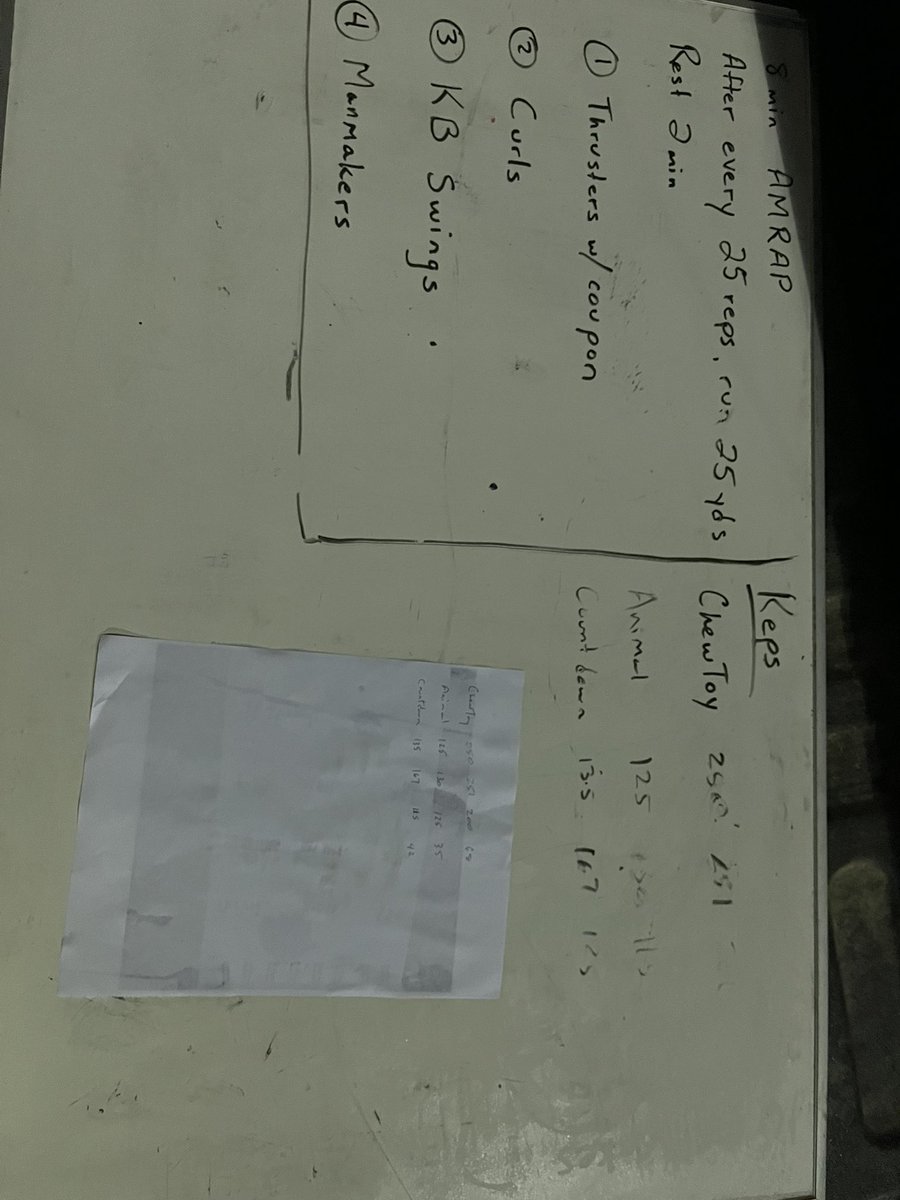 8 min AMRAP
After every 25 reps, run 25 yds
Rest 2 min
① Thrusters w/ coupon
② Curls
③ KB Swings
④ Manmakers
Reps
ChewToy 251
Animal 125
Countdown 135 167
ChewToy 200 68
Animal 125 130 125 35
Countdown 135 167 115 42